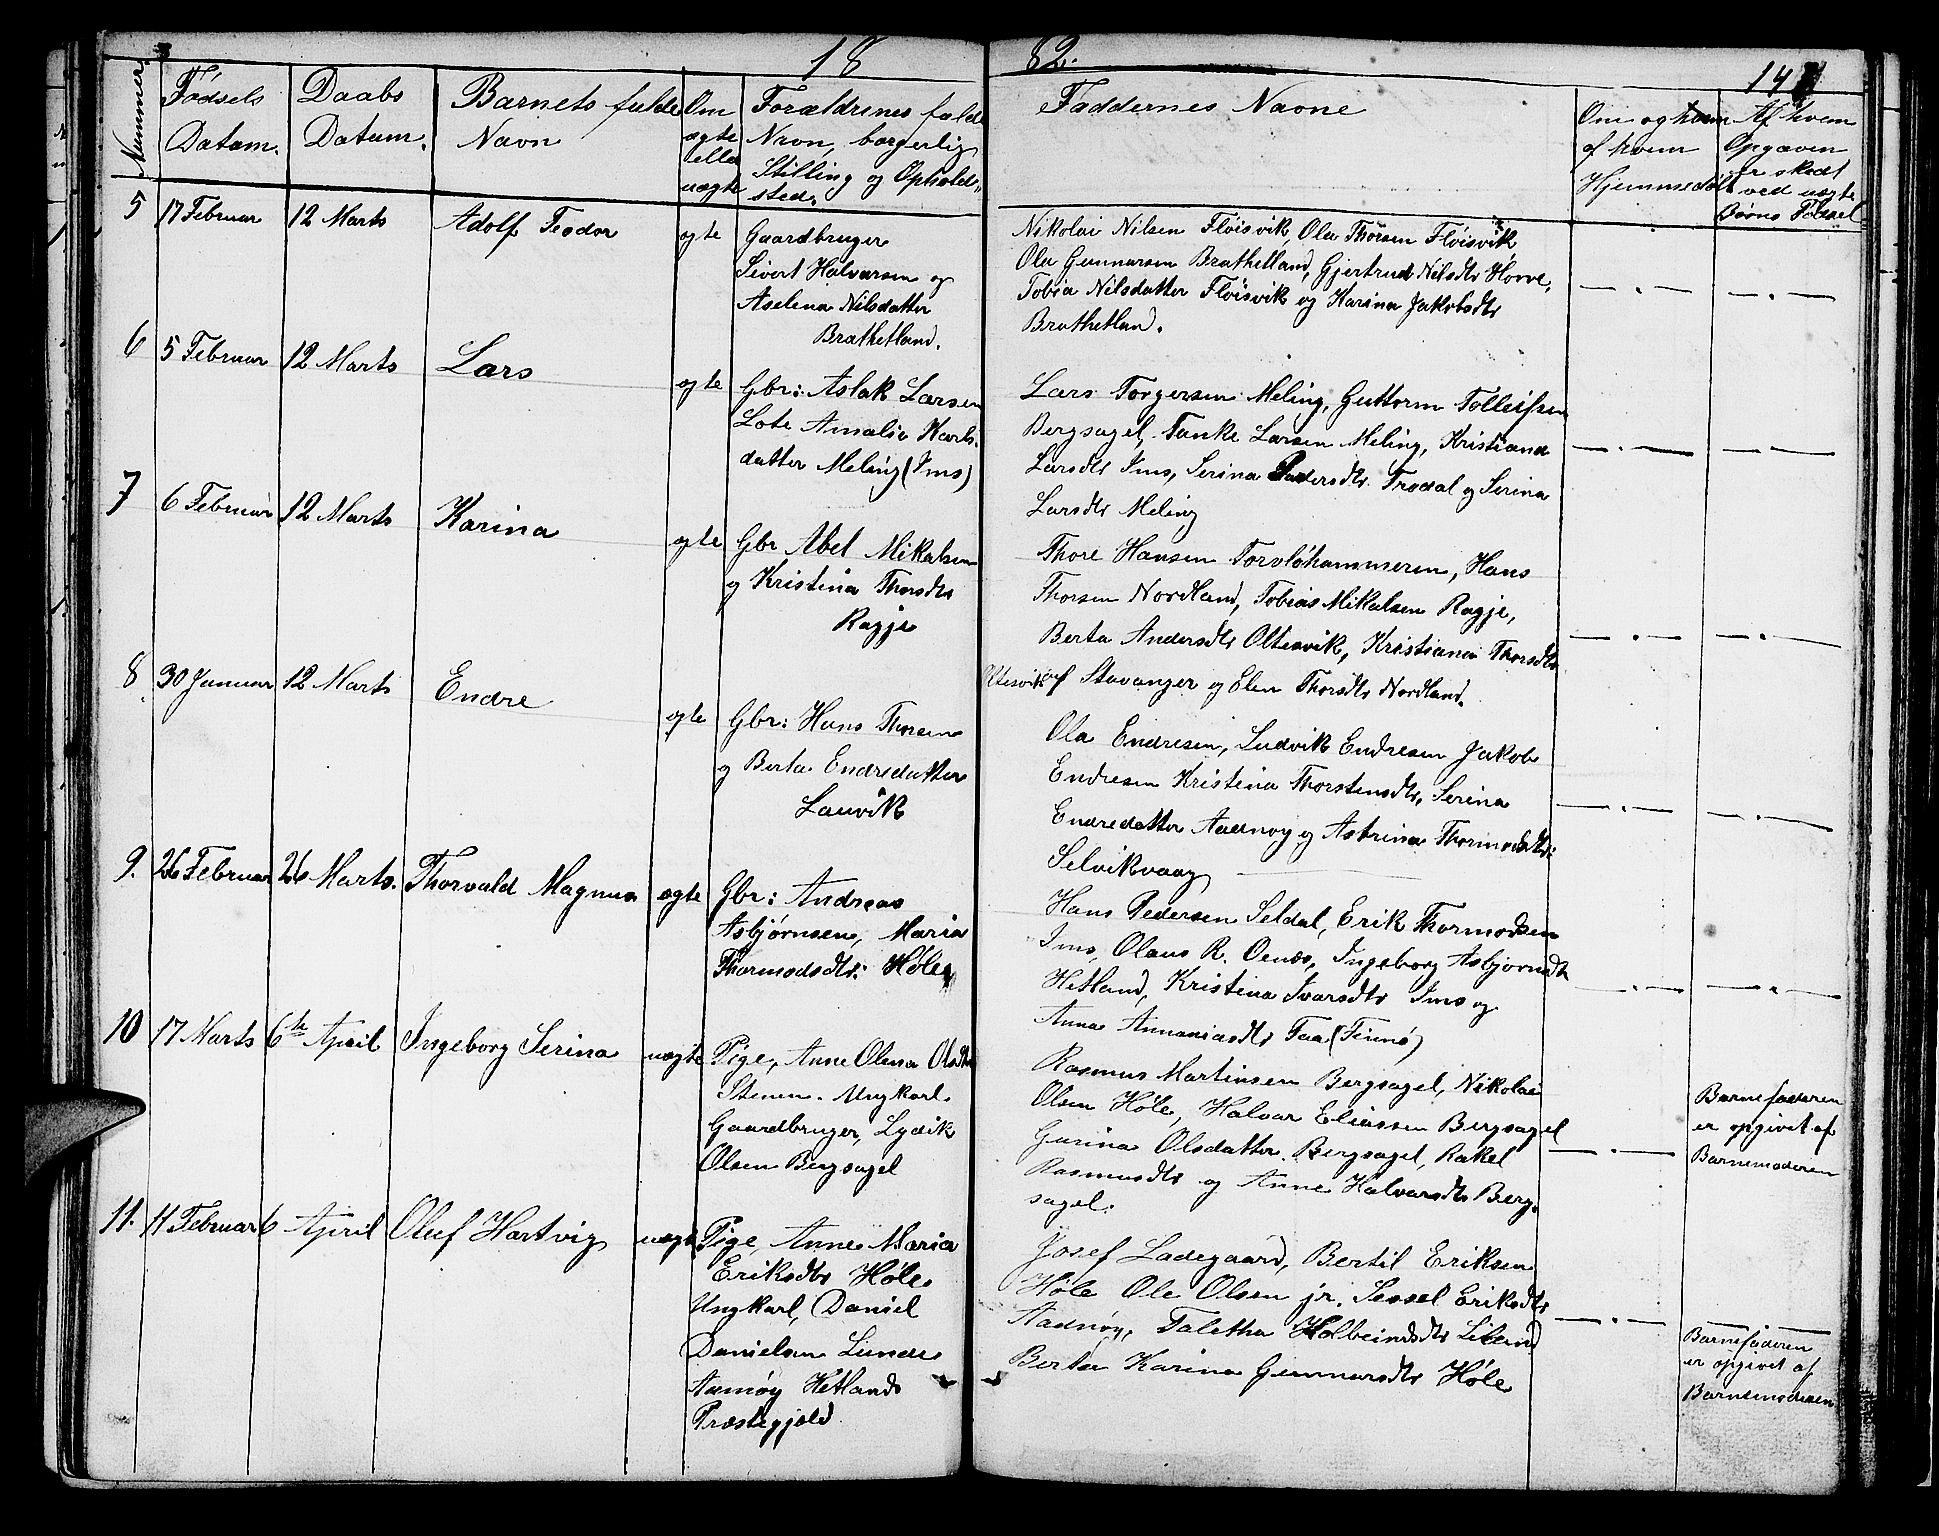 18 82. 147
Nummer.
Födsels
Datum.
Daabs
Datum.
Barnets fulde
Navn
Om
ægte
eller
uægte
Forældrenes fulde
Navn, borgerlig
Stilling og Opholds-
sted.
Faddernes Navne
Om og hvem
af hvem
Hjemmedöbt
Af hvem
Opgaven
er skedt
ved uægte
Börns Födsel
5 17 Februar 12 Marts Adolf Teodor ægte
Gaardbruger
Sivert Halvarsen og
Aselena Nilsdatter
Brathetland.
Nikolai Nilsen Flöisvik, Ola Thorsen Flöisvik,
Ola Gunnarsen Brathetland, Gjertrud Nilsdtr Horve,
Tobia Nilsdatter Flöisvik og Karina Jakobsdtr
Brathetland.
6 5 Februar 12 Marts Lars ægte
Gbr: Aslak Larsen
Lote Amalia Karls-
datter Meling (Ims)
Lars Torgersen Meling, Guttorm Tolleifsen
Bergsagel, Tanke Larsen Meling, Kristiana
Larsdtr Ims, Serina Pedersdtr Trodal og Serina
Larsdtr Meling
7 6 Februar 12 Marts Karina ægte
Gbr Abel Mikalsen
og Kristina Thorsdtr
Ragje
Thore Hansen Torvlöhammeren, Hans
Thorsen Nordland, Tobias Mikalsen Ragje,
Berta Andersdtr Oltesvik, Kristiana Thorsdtr
Oltesvik af Stavanger og Elen Thorsdtr Nordland.
8 30 Januar 12 Marts Endre ægte
Gbr: Hans Thorsen
og Berta Endredatter
Lauvik
Ola Endresen, Ludvik Endresen Jakob
Endresen Kristina Thorstensdtr, Serina
Endredatter Aadnøy og Astrina Thormodsdtr:
Selvikvaag
9. 26 Februar 26 Marts. Thorvald Magnus ægte
Gbr: Andreas
Asbjørnsen, Maria
Thormodsdtr: Høle
Hans Pedersen Seldal, Erik Thormodsen
Ims, Olaus R. Oenæs, Ingeborg Asbjørnsdtr
Hetland, Kristina Ivarsdtr Ims og
Anna Annaniasdtr Faa (Finnø)
10 17 Marts 6te April Ingeborg Serina uægte
Pige, Anne Olena Olsdtr
Stenen. Ungkarl.
Gaardbruger, Lydik
Olsen Bergsagel
Rasmus Martinsen Bergsagel, Nikolai
Olsen Høle, Halvar Eliassen Bergsagel
Gurina Olsdatter Bergsagel, Rakel
Rasmusdtr og Anne Halvarsdtr Berg-
sagel.
Barnefaderen
er opgivet af
Barnemoderen
11. 11 Februar 6 April Oluf Hartvig uægte
Pige, Anne Maria
Eriksdtr Høle
Ungkarl, Daniel
Danielsen Lunde
Aamøy Hetlands
Præstegjæld
Josef Ladegaard, Bertil Eriksen
Høle Ole Olsen jr. Sessel Eriksdtr
Aadnøy, Taletha Holbeindsdtr Liland
Berta Karina Gunnarsdtr Høle
Barnefaderen
er opgivet af
Barnemoderen